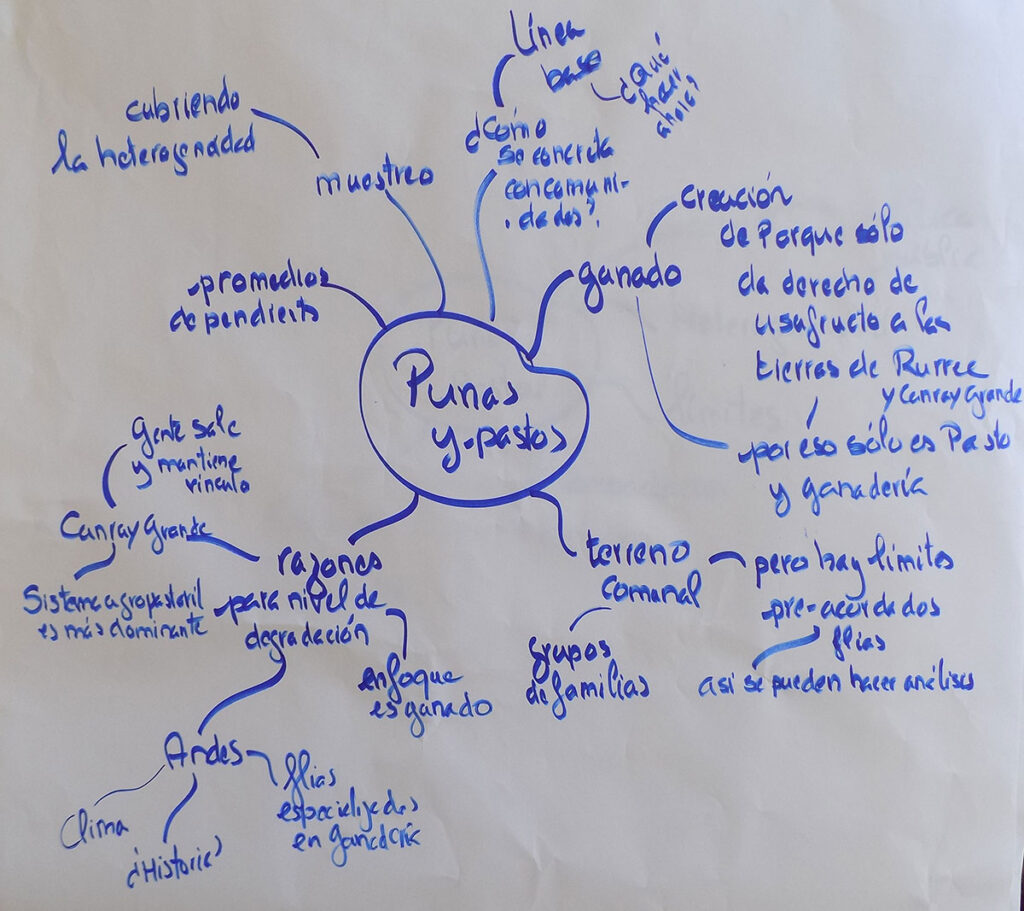 Línea
base
¿Qué
hacer
ahora?
¿Cómo
se concreta
con comuni-
dades?
cubriendo
la heterogenidad
muestreo
promedios
dependients
ganado
creación
de Porque sólo
da derecho de
usafructo a las
tierras de Rurrec
y Canray Grande
por eso sólo es Pasto
y ganadería
Punas
y pastos
Gente sale
y mantiene
vínculo
Canray Grande
Sistema agropastoril
es más dominante
razones
para nivel de
degradación
enfoque
es ganado
Andes
Clima
¿Historia?
flias
especializadas
en Ganadería
terreno
comunal
grupos
de familias
pero hay límites
pre-acordados
flias
así se pueden hacer análisis